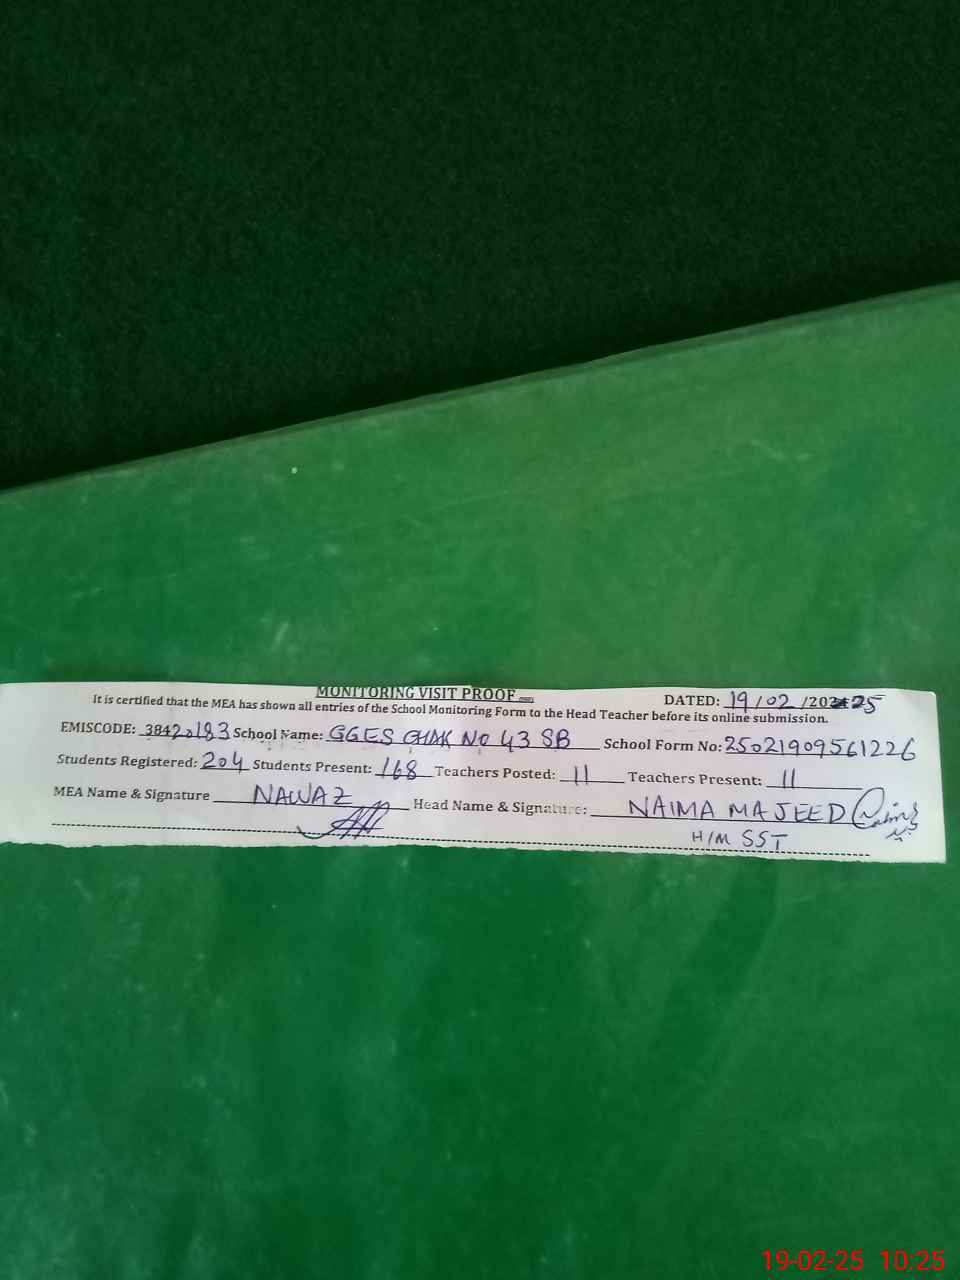 MONITORING VISIT PROOF
DATED: 19/02/2025
It is certified that the MEA has shown all entries of the School Monitoring Form to the Head Teacher before its online submission.
EMISCODE: 38420183 School Name: GGES CHAK NO 43 SB School Form No: 25021909561226
Students Registered: 204 Students Present: 168 Teachers Posted: 11 Teachers Present: 11
MEA Name & Signature NAWAZ Head Name & Signature: NAIMA MAJEED
H/M SST
19-02-25 10:25